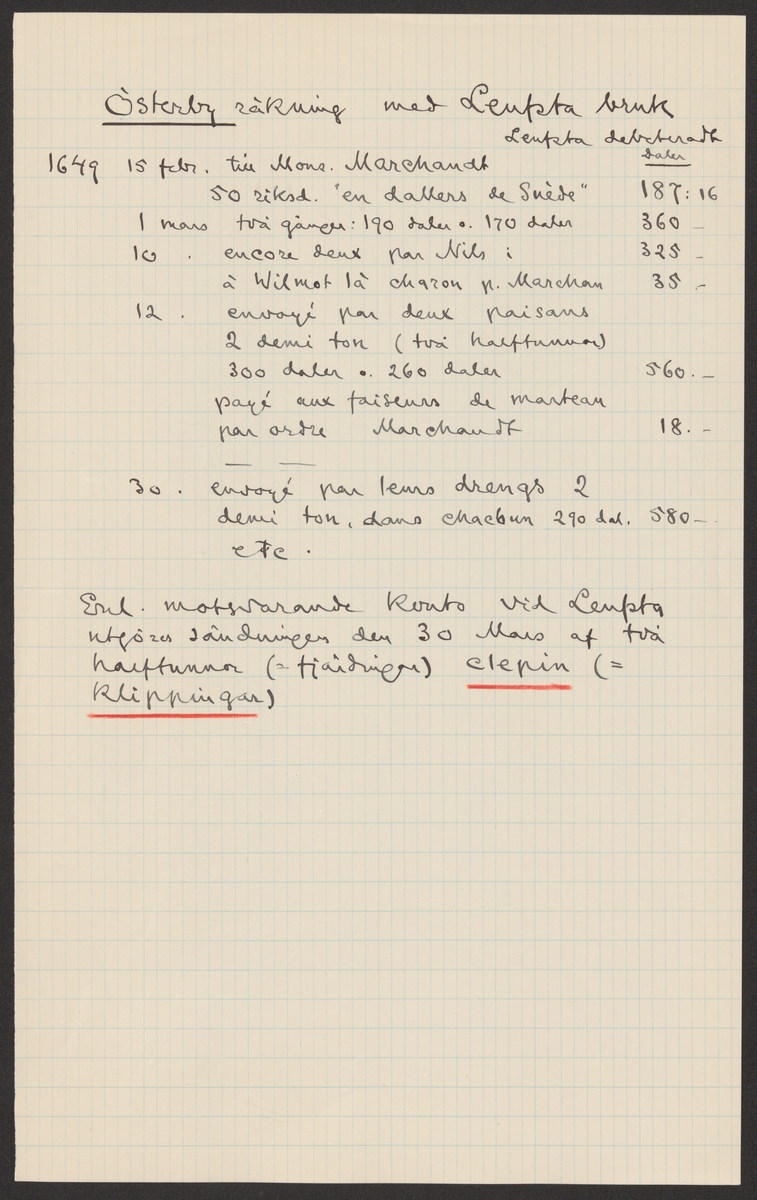 Österby räkning med Leufsta bruk
Leufsta debeteradt
daler
1649 15 febr. till Mons. Marchandt
50 riksd. "en dallers de Suède" 187:16
1 mars två gånger: 190 daler o. 170 daler 360 –
10 . encore deux par Nils i 325 –
à Wilmot là charon p. Marchan 35 –
12 . envoyé par deux paisans
2 demi ton (två halftunnor)
300 daler o. 260 daler 560.–
payé aux faiseurs de marteau
par ordre Marchandt 18.–
— —
30 . envoyé par leurs drengs 2
demi ton, dans chacbun 290 dal. 580–
etc.
Enl. motsvarande konto vid Leufsta
utgöres sändningen den 30 Mars af två
halftunnor (= fjärdingar) clepin (=
klippingar)